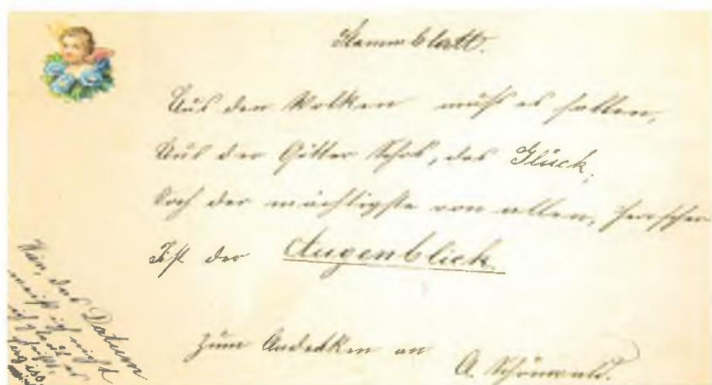 Stammblatt.
Aus den Wolken muß es fallen,
Aus der Götter Schos, das Glück,
Doch der mächtigste von allen, Herrscher
Ist der Augenblick.
Zum Andenken an
A. Schönwald.
Nur, das Datum
weiß ich nicht